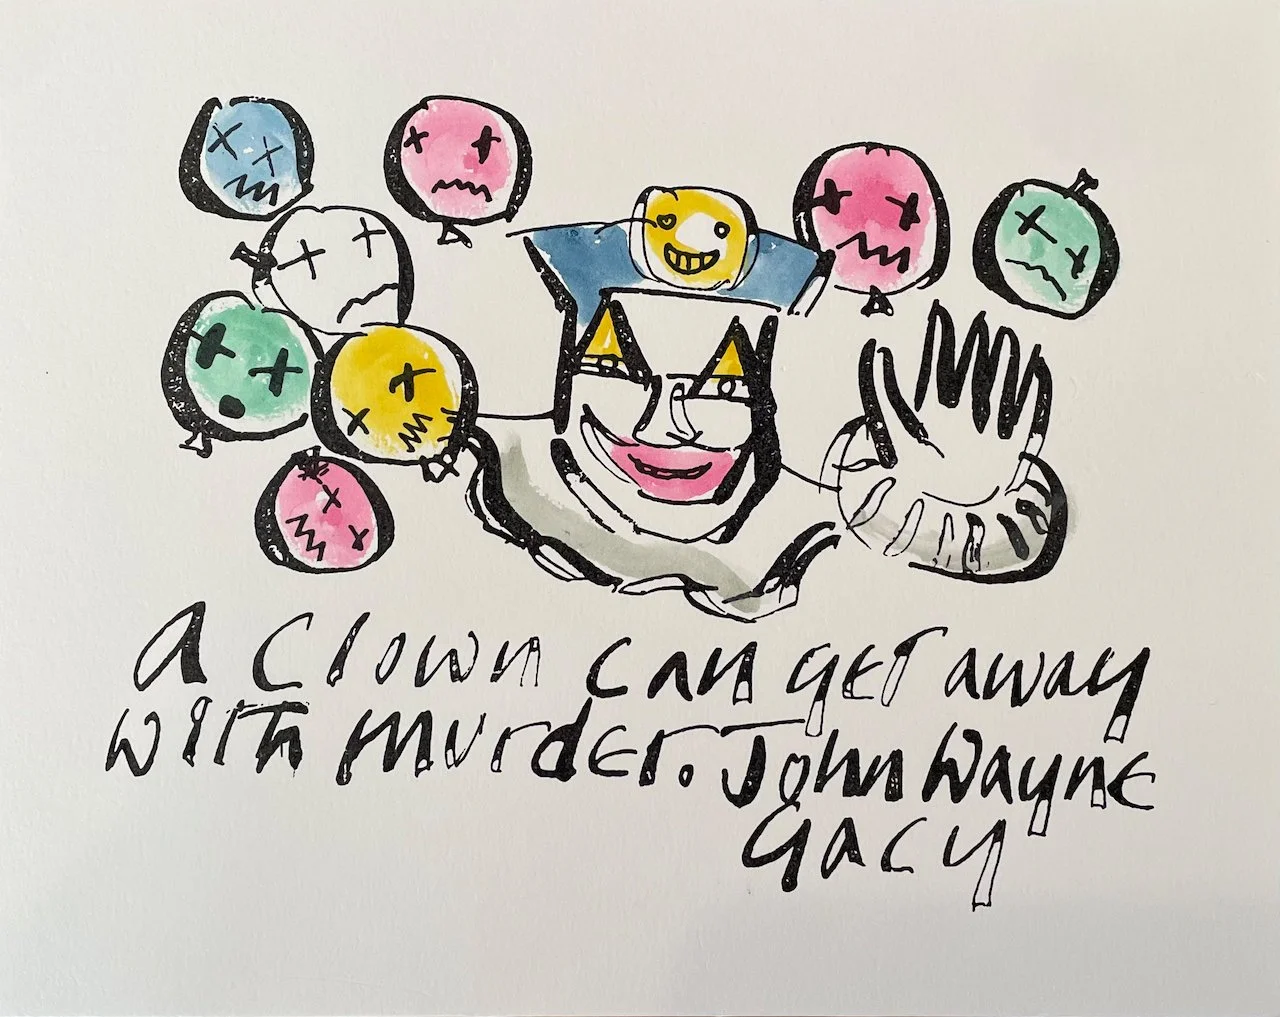 A clown can get away
with murder. John Wayne
Gacy